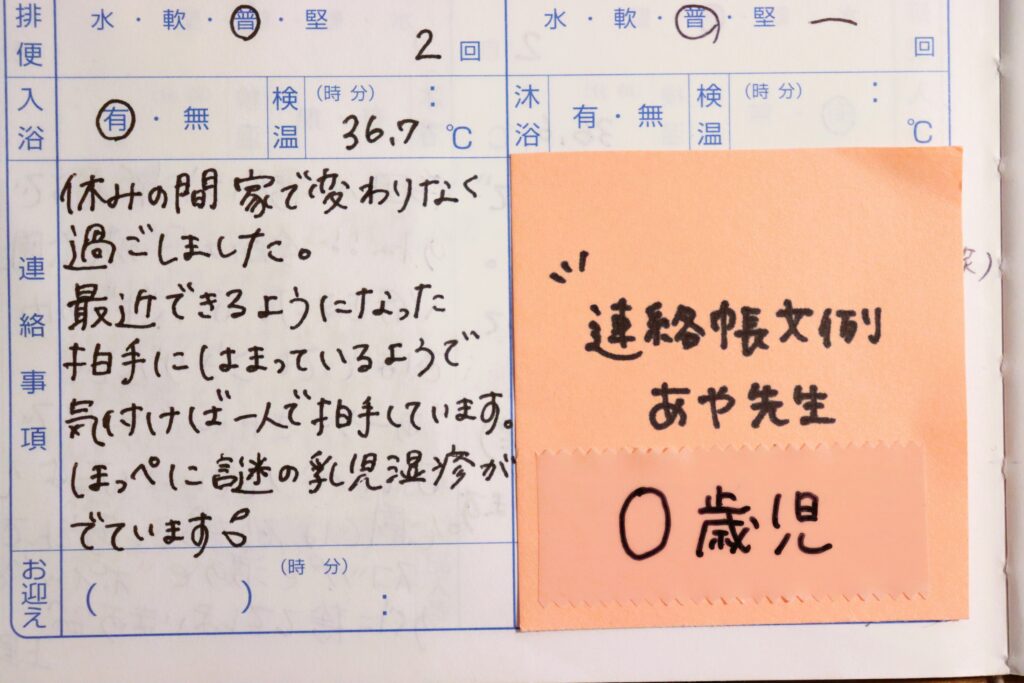 排便 水・軟・普・堅 2回
水・軟・普・堅 ー 回
入浴 有・無 検温 (時分) : 36.7℃
沐浴 有・無 検温 (時分) : ℃
連絡事項
休みの間家で変わりなく
過ごしました。
最近できるようになった
拍手にはまっているようで
気付けば一人で拍手しています。
ほっぺに謎の乳児湿疹が
でています
お迎え ( ) (時分) :
連絡帳文例
あや先生
0歳児